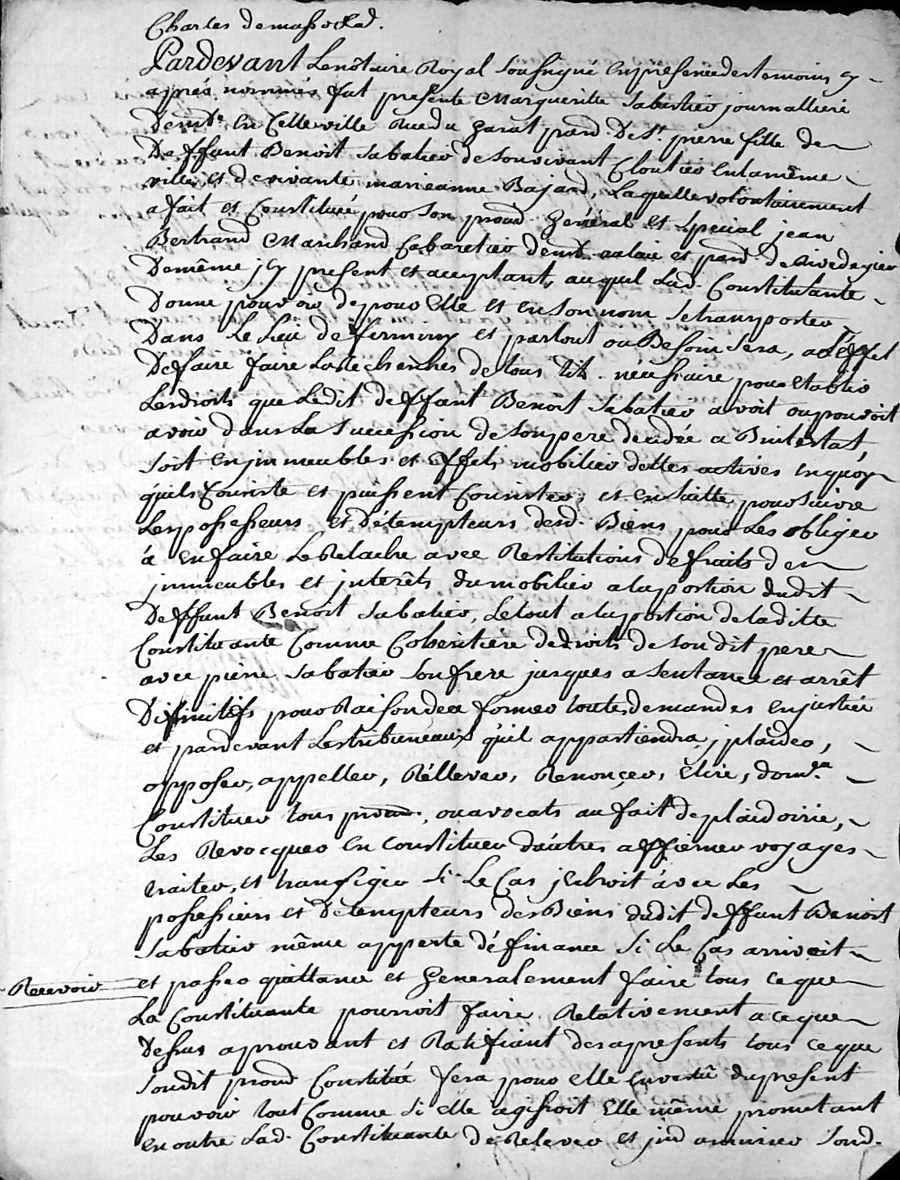 Charles demassoclad.
Pardevant Lenotaire Royal Sousigné enpresencedestemoins cy
aprés nommés fut presente Margueritte Sabatier journalliere
Demte. En Cetteville Rue du garat parr. De St. pierre fille de
Deffunt Benoit Sabatier desonvivant Cloutier Enlamême
ville, et devivante marieanne Bajard, Laquellevolontairement
a fait et Constitué pour son procur. General et special jean
Bertrand Marchand Cabaretier demt. et parr.
Demême icy present et acceptant, auquel Lad. Constituante
Donne pouvoir de pour Elle et en son nom Setransporter
Dans Le Lieu de fermony et partout ou Besoin sera, a L'effet
De faire faire La Recherches de tous tit. nécessaire pour etablir
Lesdroits que Ledit deffunt Benoit Sabatier avoit oupouvoit
avoir dans La Succession de sonpere decedée aBintestat,
soit enimmeubles et Effets mobilier dettes actives enquoy
quils Consiste et puissent Consister; et ensuitte poursuivre
Lespossesseurs et Détempteurs desd. Biens pour Les obliger
à en faire Le Relache avec Restitutions de fruits des
immeubles et interêts dumobilier a laportion dudit
Deffunt Benoit Sabatier, Letout a laportion de laditte
Constituante Comme Coheritiere dedroits de sondit pere
avec pierre Sabatier son frere jusques a Sentance et arrêt
Diffinitifs pour Raisondece former toutes demandes enjustice
et pardevant Lestribuneaux qu'il appartiendra, plaider,
opposer, appeller, Rélever, Renonçer, Elire, domle.
Constituer tous procur., ouavocats au fait de plaidoirie,
Les Revocquer en Constituer d'autres affirmer voyages
traiter, et transiger si Le Cas jEchoit avec Les
possessieurs et Détempteurs des Biens dudit deffunt Benoit
Sabatier même apperte définance si Le Cas arrivoit
Recevoir et passer quittance et Generalement faire tous ceque
La Constituante pourroit faire Relativement aceque
Dessus aprouvant et Ratifiant desapresents tous ceque
Sondit procur Constitué fera pour elle envertû dupresent
pouvoir tout Comme si elle agissoit Elle même prometant
en outre Lad. Constituante de Relever et indamniser Sond.